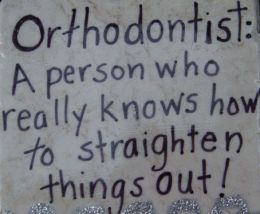 Orthodontist:
A person who
really knows how
to straighten
things out!